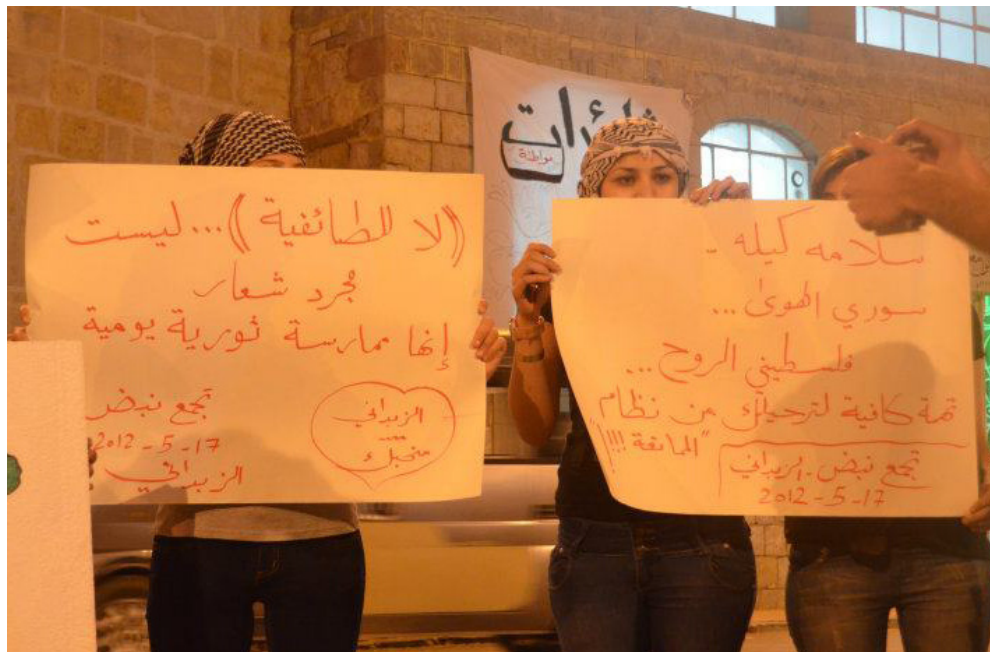 ثائرات
مواطنة
((لا للطائفية))...ليست
مجرد شعار
إنها ممارسة ثورية يومية
تجمع نبض
17-5-2012
الزبداني
الزبداني
....
منحبك
سلامه كيله -
سوري الهوى...
فلسطيني الروح...
تهمة كافية لترحيلك من نظام
"الممانعة!!!"
تجمع نبض-الزبداني
17-5-2012